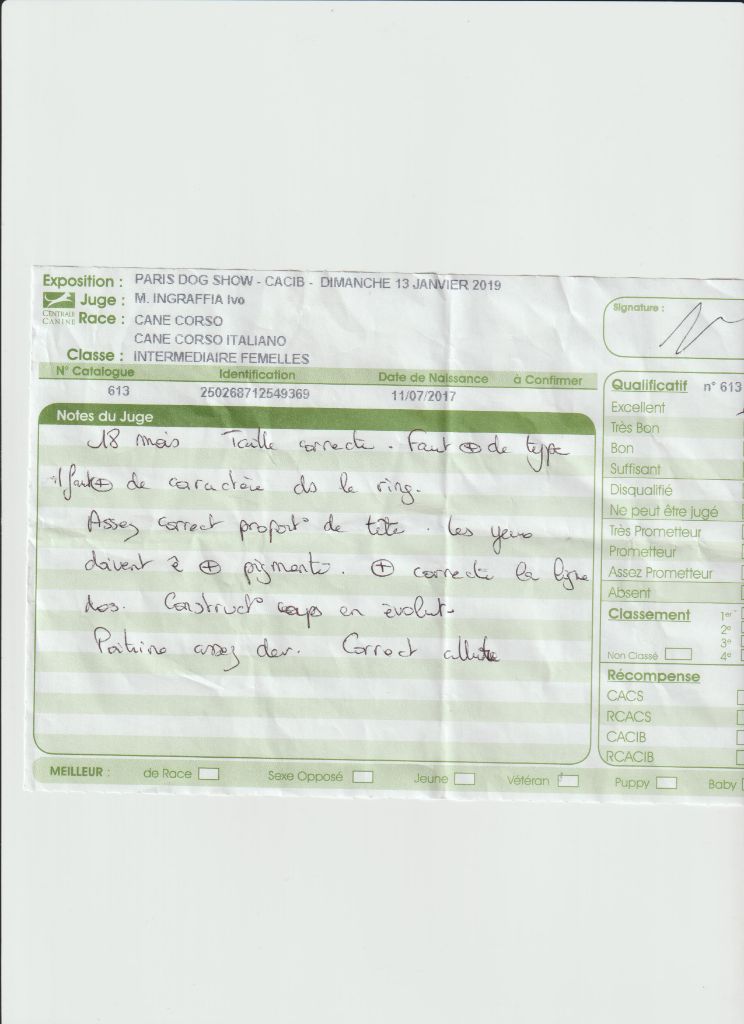 Exposition : PARIS DOG SHOW - CACIB - DIMANCHE 13 JANVIER 2019
CENTRALE CANINE
Juge : M. INGRAFFIA Ivo
Race : CANE CORSO
CANE CORSO ITALIANO
Classe : INTERMEDIAIRE FEMELLES
Signature :
N° Catalogue Identification Date de Naissance à Confirmer
613 250268712549369 11/07/2017
Notes du Juge
18 mois Taille correcte . Faut ⊕ de type
il faut ⊕ de caractère ds le ring.
Assez correct proport° de tête . Les yeux
doivent ê ⊕ pigmenté . ⊕ correcte la ligne
dos. Construct° corps en évolut°
Poitrine assez dev. Correct allure
Qualificatif n° 613
Excellent
Très Bon
Bon
Suffisant
Disqualifié
Ne peut être jugé
Très Prometteur
Prometteur
Assez Prometteur
Absent
Classement 1er
2e
3e
Non Classé 4e
Récompense
CACS
RCACS
CACIB
RCACIB
MEILLEUR : de Race Sexe Opposé Jeune Vétéran Puppy Baby